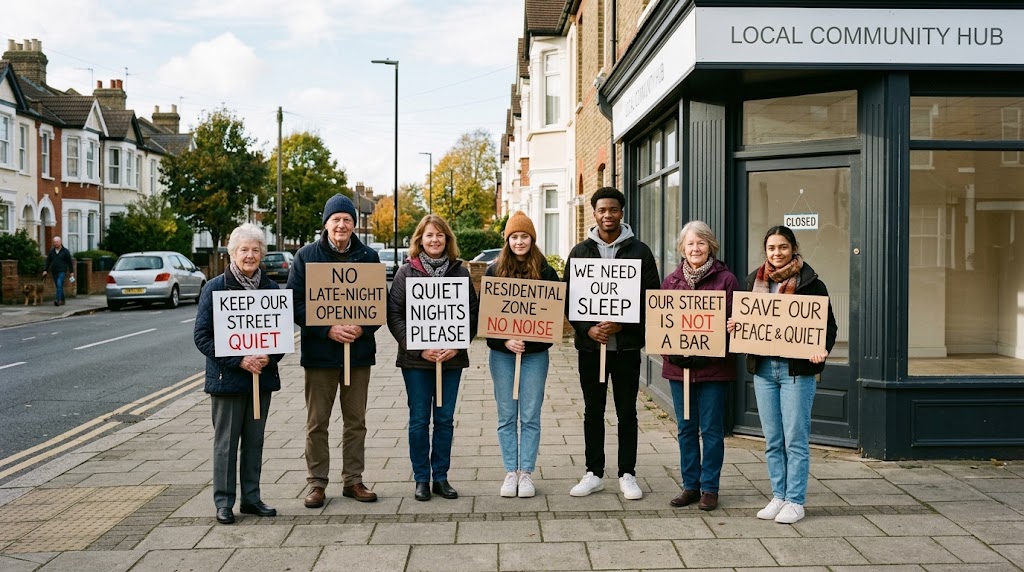 LOCAL COMMUNITY HUB
LOCAL COMMUNITY HUB
CLOSED
KEEP OUR
STREET
QUIET
NO
LATE-NIGHT
OPENING
QUIET
NIGHTS
PLEASE
RESIDENTIAL
ZONE –
NO NOISE
WE NEED
OUR
SLEEP
OUR STREET
IS NOT
A BAR
SAVE OUR
PEACE & QUIET